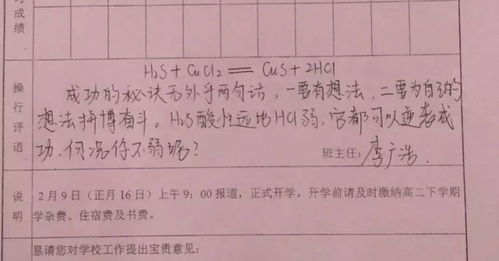 成绩
H₂S + CuCl₂ == CuS + 2HCl
操行评语
成功的秘诀无外乎两句话，一要有想法，二要为自己的
想法拼博奋斗。H₂S酸性远比HCl弱，它都可以逆袭成
功，何况你不弱呢？
班主任：李广浩
说明
2月9日（正月16日）上午9：00报道，正式开学。开学前请及时缴纳高二下学期
学杂费、住宿费及书费。
恳请您对学校工作提出宝贵意见：